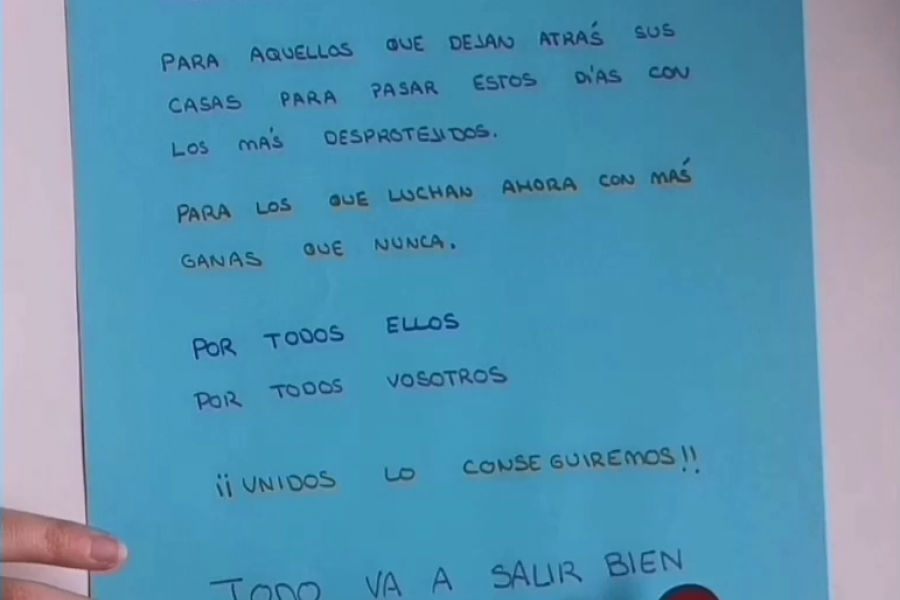 PARA AQUELLOS QUE DEJAN ATRÁS SUS
CASAS PARA PASAR ESTOS DÍAS CON
LOS MÁS DESPROTEJIDOS.
PARA LOS QUE LUCHAN AHORA CON MÁS
GANAS QUE NUNCA.
POR TODOS ELLOS
POR TODOS VOSOTROS
¡¡UNIDOS LO CONSEGUIREMOS!!
TODO VA A SALIR BIEN